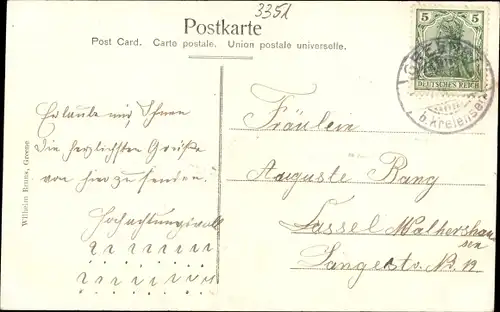 3351
Postkarte
Post Card. Carte postale. Union postale universelle.
5 5
DEUTSCHES REICH
GREENE
b. Kreiensen
Erlaube mir, Ihnen
die herzlichsten Grüße
von hier zu senden.
Hochachtungsvoll
Fräulein
Auguste Rang
Cassel Walhershau
sen
Langestr. No. 12
Wilhelm Bruns, Greene